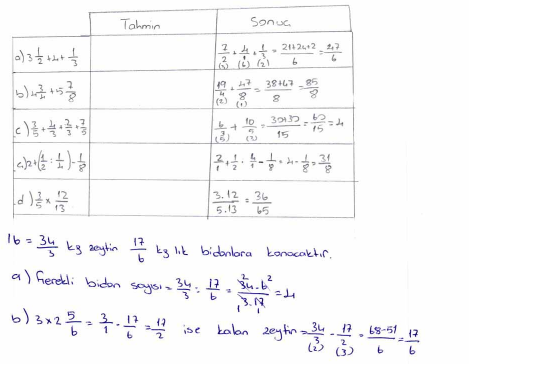 Tahmin Sonuc
a) 3 1/2 + 4 + 1/3 7/2 (3) + 4/1 (6) + 1/3 (2) = 21+24+2/6 = 47/6
b) 4 3/4 + 5 7/8 19/4 (2) + 47/8 (1) = 38+47/8 = 85/8
c) 3/5 + 4/3 + 2/3 + 7/5 6/3 (5) + 10/5 (3) = 30+30/15 = 60/15 = 4
ç) 2 + (1/2 : 1/4) - 1/8 2/1 + 1/2 · 4/1 - 1/8 = 4 - 1/8 = 31/8
d) 3/5 x 12/13 3.12/5.13 = 36/65
16 = 34/3 kg zeytin 17/6 kg lık bidonlara konacaktır.
a) Gerekli bidon sayısı = 34/3 : 17/6 = 34·6/3·17 = 4
b) 3 x 2 5/6 = 3/1 · 17/6 = 17/2 ise kalan zeytin = 34/3 (2) - 17/2 (3) = 68-51/6 = 17/6